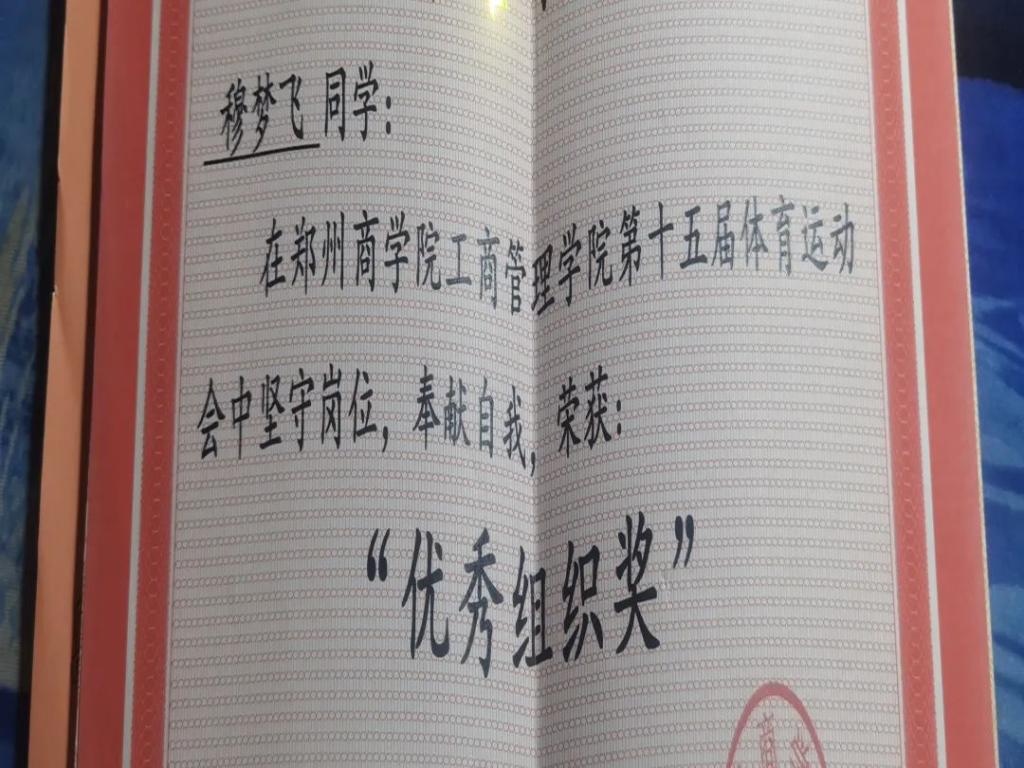 穆梦飞 同学：
在郑州商学院工商管理学院第十五届体育运动
会中坚守岗位，奉献自我，荣获：
“优秀组织奖”